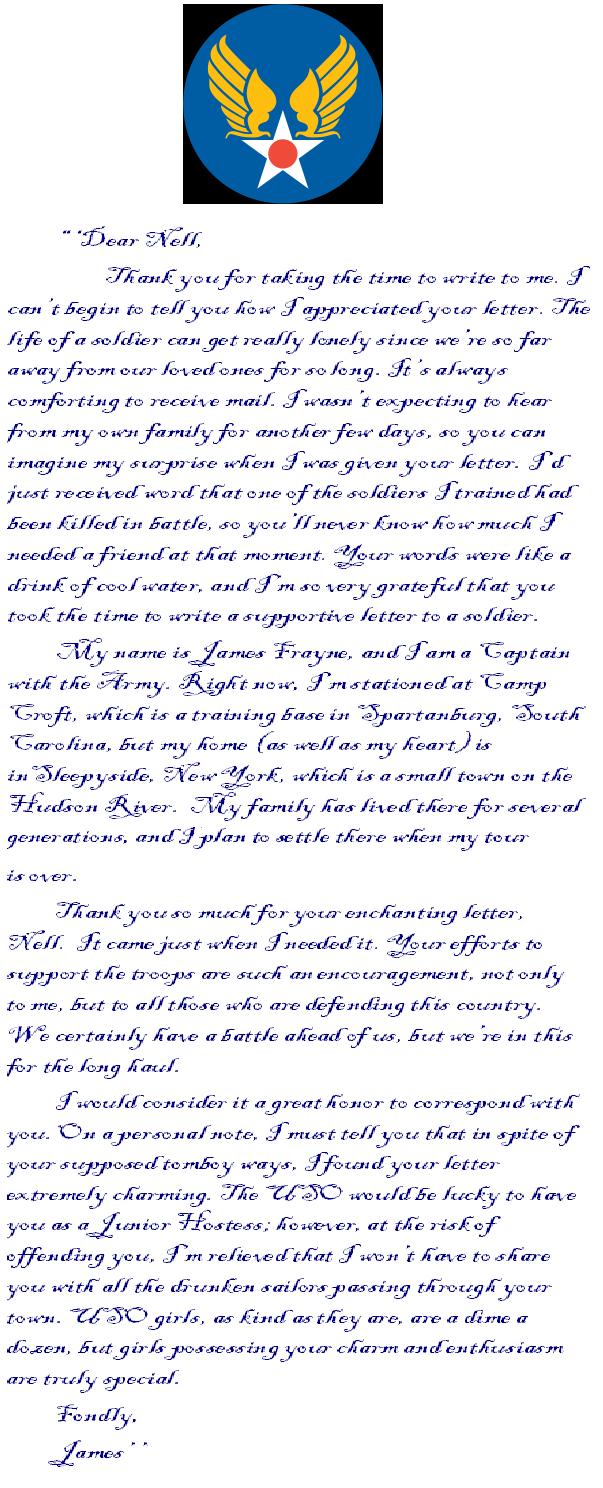 “ ‘Dear Nell,
Thank you for taking the time to write to me. I
can’t begin to tell you how I appreciated your letter. The
life of a soldier can get really lonely since we’re so far
away from our loved ones for so long. It’s always
comforting to receive mail. I wasn’t expecting to hear
from my own family for another few days, so you can
imagine my surprise when I was given your letter. I’d
just received word that one of the soldiers I trained had
been killed in battle, so you’ll never know how much I
needed a friend at that moment. Your words were like a
drink of cool water, and I’m so very grateful that you
took the time to write a supportive letter to a soldier.
My name is James Frayne, and I am a Captain
with the Army. Right now, I’m stationed at Camp
Croft, which is a training base in Spartanburg, South
Carolina, but my home (as well as my heart) is
in Sleepyside, New York, which is a small town on the
Hudson River. My family has lived there for several
generations, and I plan to settle there when my tour
is over.
Thank you so much for your enchanting letter,
Nell. It came just when I needed it. Your efforts to
support the troops are such an encouragement, not only
to me, but to all those who are defending this country.
We certainly have a battle ahead of us, but we’re in this
for the long haul.
I would consider it a great honor to correspond with
you. On a personal note, I must tell you that in spite of
your supposed tomboy ways, I found your letter
extremely charming. The USO would be lucky to have
you as a Junior Hostess; however, at the risk of
offending you, I’m relieved that I won’t have to share
you with all the drunken sailors passing through your
town. USO girls, as kind as they are, are a dime a
dozen, but girls possessing your charm and enthusiasm
are truly special.
Fondly,
James’ ’